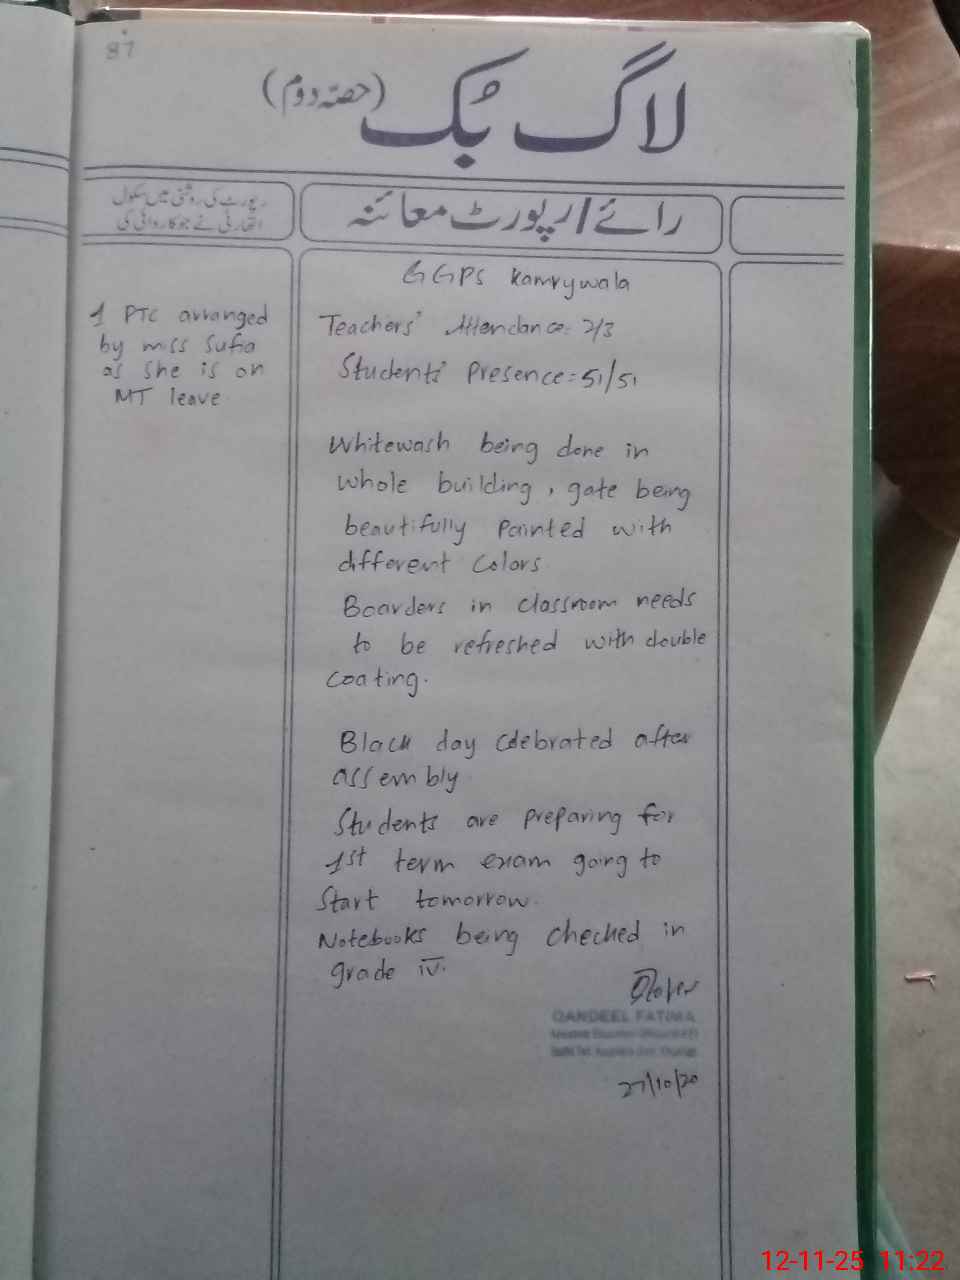 87
لاگ بک (حصہ دوم)
رپورٹ کی روشنی میں سکول
اتھارٹی نے جو کاروائی کی
رائے/رپورٹ معائنہ
1 PTC arranged
by miss Sufia
as she is on
MT leave
GGPS Kamrywala
Teachers' Attendance: 2/3
Students' Presence: 51/51
Whitewash being done in
whole building, gate being
beautifully painted with
different colors.
Boarders in classroom needs
to be refreshed with double
coating.
Black day celebrated after
assembly
Students are preparing for
1st term exam going to
start tomorrow.
Notebooks being checked in
grade iv.
QANDEEL FATIMA
27/10/20
12-11-25 11:22